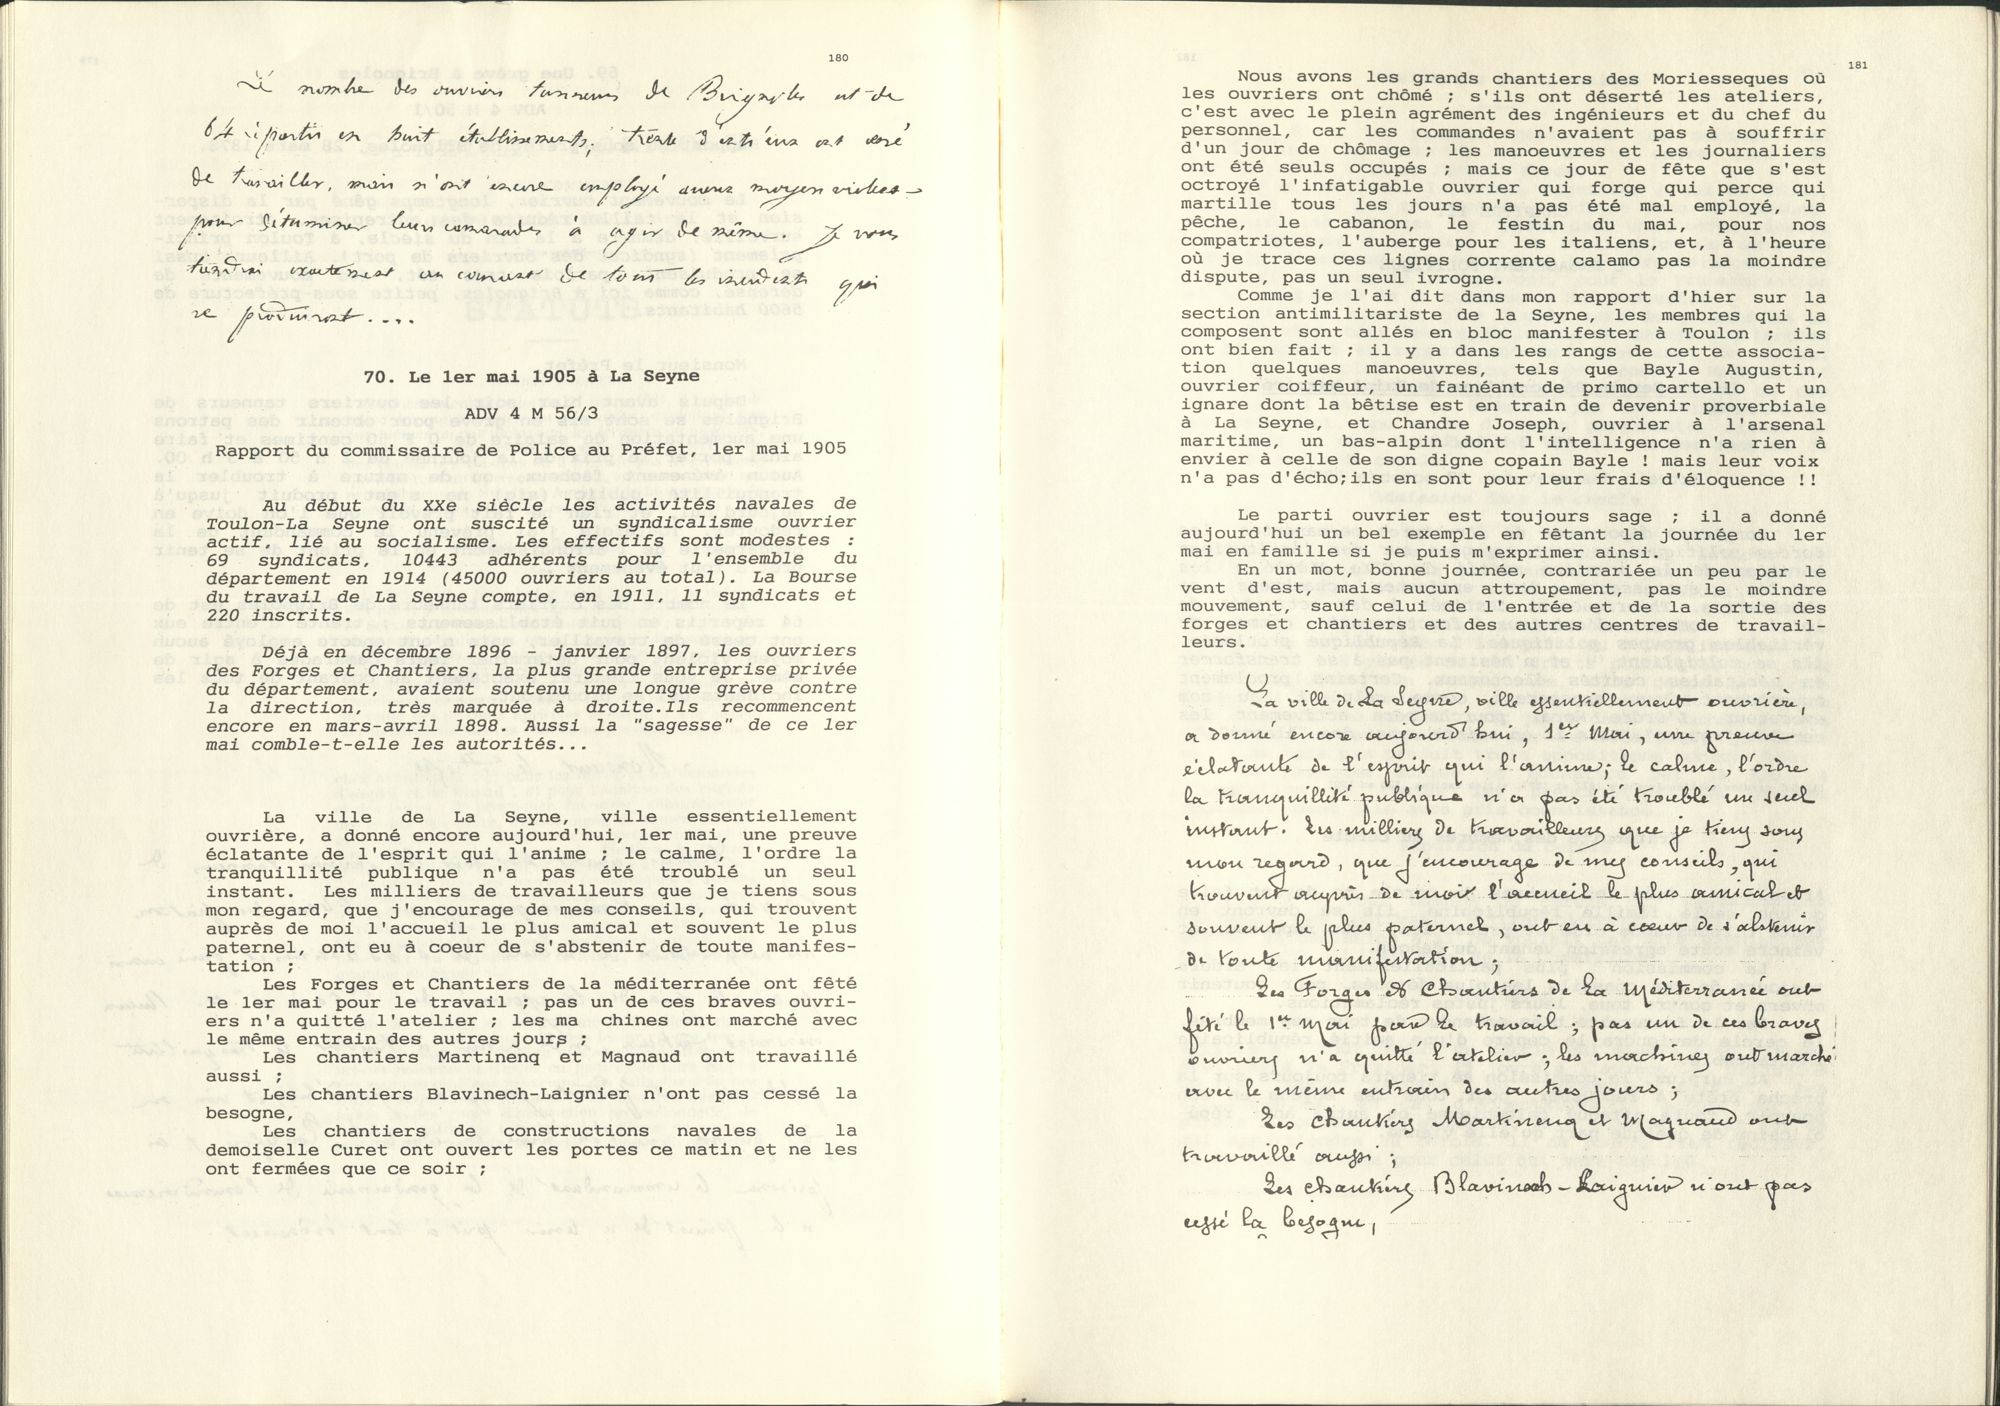 180
Le nombre des ouvriers tanneurs de Brignoles est de
64 répartis en huit établissements; trente d'entr'eux ont cessé
de travailler, mais n'ont encore employé aucun moyen violent
pour déterminer leurs camarades à agir de même. Je vous
tiendrai exactement au courant de tous les incidents qui
se produiront....
70. Le 1er mai 1905 à La Seyne
ADV 4 M 56/3
Rapport du commissaire de Police au Préfet, 1er mai 1905
Au début du XXe siècle les activités navales de
Toulon-La Seyne ont suscité un syndicalisme ouvrier
actif, lié au socialisme. Les effectifs sont modestes :
69 syndicats, 10443 adhérents pour l'ensemble du
département en 1914 (45000 ouvriers au total). La Bourse
du travail de La Seyne compte, en 1911, 11 syndicats et
220 inscrits.
Déjà en décembre 1896 - janvier 1897, les ouvriers
des Forges et Chantiers, la plus grande entreprise privée
du département, avaient soutenu une longue grève contre
la direction, très marquée à droite.Ils recommencent
encore en mars-avril 1898. Aussi la "sagesse" de ce 1er
mai comble-t-elle les autorités...
La ville de La Seyne, ville essentiellement
ouvrière, a donné encore aujourd'hui, 1er mai, une preuve
éclatante de l'esprit qui l'anime ; le calme, l'ordre la
tranquillité publique n'a pas été troublé un seul
instant. Les milliers de travailleurs que je tiens sous
mon regard, que j'encourage de mes conseils, qui trouvent
auprès de moi l'accueil le plus amical et souvent le plus
paternel, ont eu à coeur de s'abstenir de toute manifes-
tation ;
Les Forges et Chantiers de la méditerranée ont fêté
le 1er mai pour le travail ; pas un de ces braves ouvri-
ers n'a quitté l'atelier ; les ma chines ont marché avec
le même entrain des autres jours ;
Les chantiers Martinenq et Magnaud ont travaillé
aussi ;
Les chantiers Blavinech-Laignier n'ont pas cessé la
besogne,
Les chantiers de constructions navales de la
demoiselle Curet ont ouvert les portes ce matin et ne les
ont fermées que ce soir ;
181
Nous avons les grands chantiers des Moriesseques où
les ouvriers ont chômé ; s'ils ont déserté les ateliers,
c'est avec le plein agrément des ingénieurs et du chef du
personnel, car les commandes n'avaient pas à souffrir
d'un jour de chômage ; les manoeuvres et les journaliers
ont été seuls occupés ; mais ce jour de fête que s'est
octroyé l'infatigable ouvrier qui forge qui perce qui
martille tous les jours n'a pas été mal employé, la
pêche, le cabanon, le festin du mai, pour nos
compatriotes, l'auberge pour les italiens, et, à l'heure
où je trace ces lignes corrente calamo pas la moindre
dispute, pas un seul ivrogne.
Comme je l'ai dit dans mon rapport d'hier sur la
section antimilitariste de la Seyne, les membres qui la
composent sont allés en bloc manifester à Toulon ; ils
ont bien fait ; il y a dans les rangs de cette associa-
tion quelques manoeuvres, tels que Bayle Augustin,
ouvrier coiffeur, un fainéant de primo cartello et un
ignare dont la bêtise est en train de devenir proverbiale
à La Seyne, et Chandre Joseph, ouvrier à l'arsenal
maritime, un bas-alpin dont l'intelligence n'a rien à
envier à celle de son digne copain Bayle ! mais leur voix
n'a pas d'écho;ils en sont pour leur frais d'éloquence !!
Le parti ouvrier est toujours sage ; il a donné
aujourd'hui un bel exemple en fêtant la journée du 1er
mai en famille si je puis m'exprimer ainsi.
En un mot, bonne journée, contrariée un peu par le
vent d'est, mais aucun attroupement, pas le moindre
mouvement, sauf celui de l'entrée et de la sortie des
forges et chantiers et des autres centres de travail-
leurs.
La ville de La Seyne, ville essentiellement ouvrière,
a donné encore aujourd'hui, 1er Mai, une preuve
éclatante de l'esprit qui l'anime; le calme, l'ordre
la tranquillité publique n'a pas été troublé un seul
instant. Les milliers de travailleurs que je tiens sous
mon regard, que j'encourage de mes conseils, qui
trouvent auprès de moi l'accueil le plus amical et
souvent le plus paternel, ont eu à coeur de s'abstenir
de toute manifestation ;
Les Forges & Chantiers de la Méditerranée ont
fêté le 1er Mai par le travail ; pas un de ces braves
ouvriers n'a quitté l'atelier ; les machines ont marché
avec le même entrain des autres jours ;
Les chantiers Martinenq et Magnaud ont
travaillé aussi ;
Les chantiers Blavinech-Laignier n'ont pas
cessé la besogne,